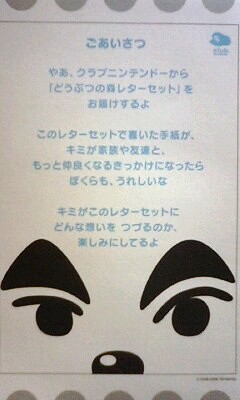 ごあいさつ
やあ、クラブニンテンドーから
「どうぶつの森レターセット」を
お届けするよ
このレターセットで書いた手紙が、
キミが家族や友達と、
もっと仲良くなるきっかけになったら
ぼくらも、うれしいな
キミがこのレターセットに
どんな想いを つづるのか、
楽しみにしてるよ